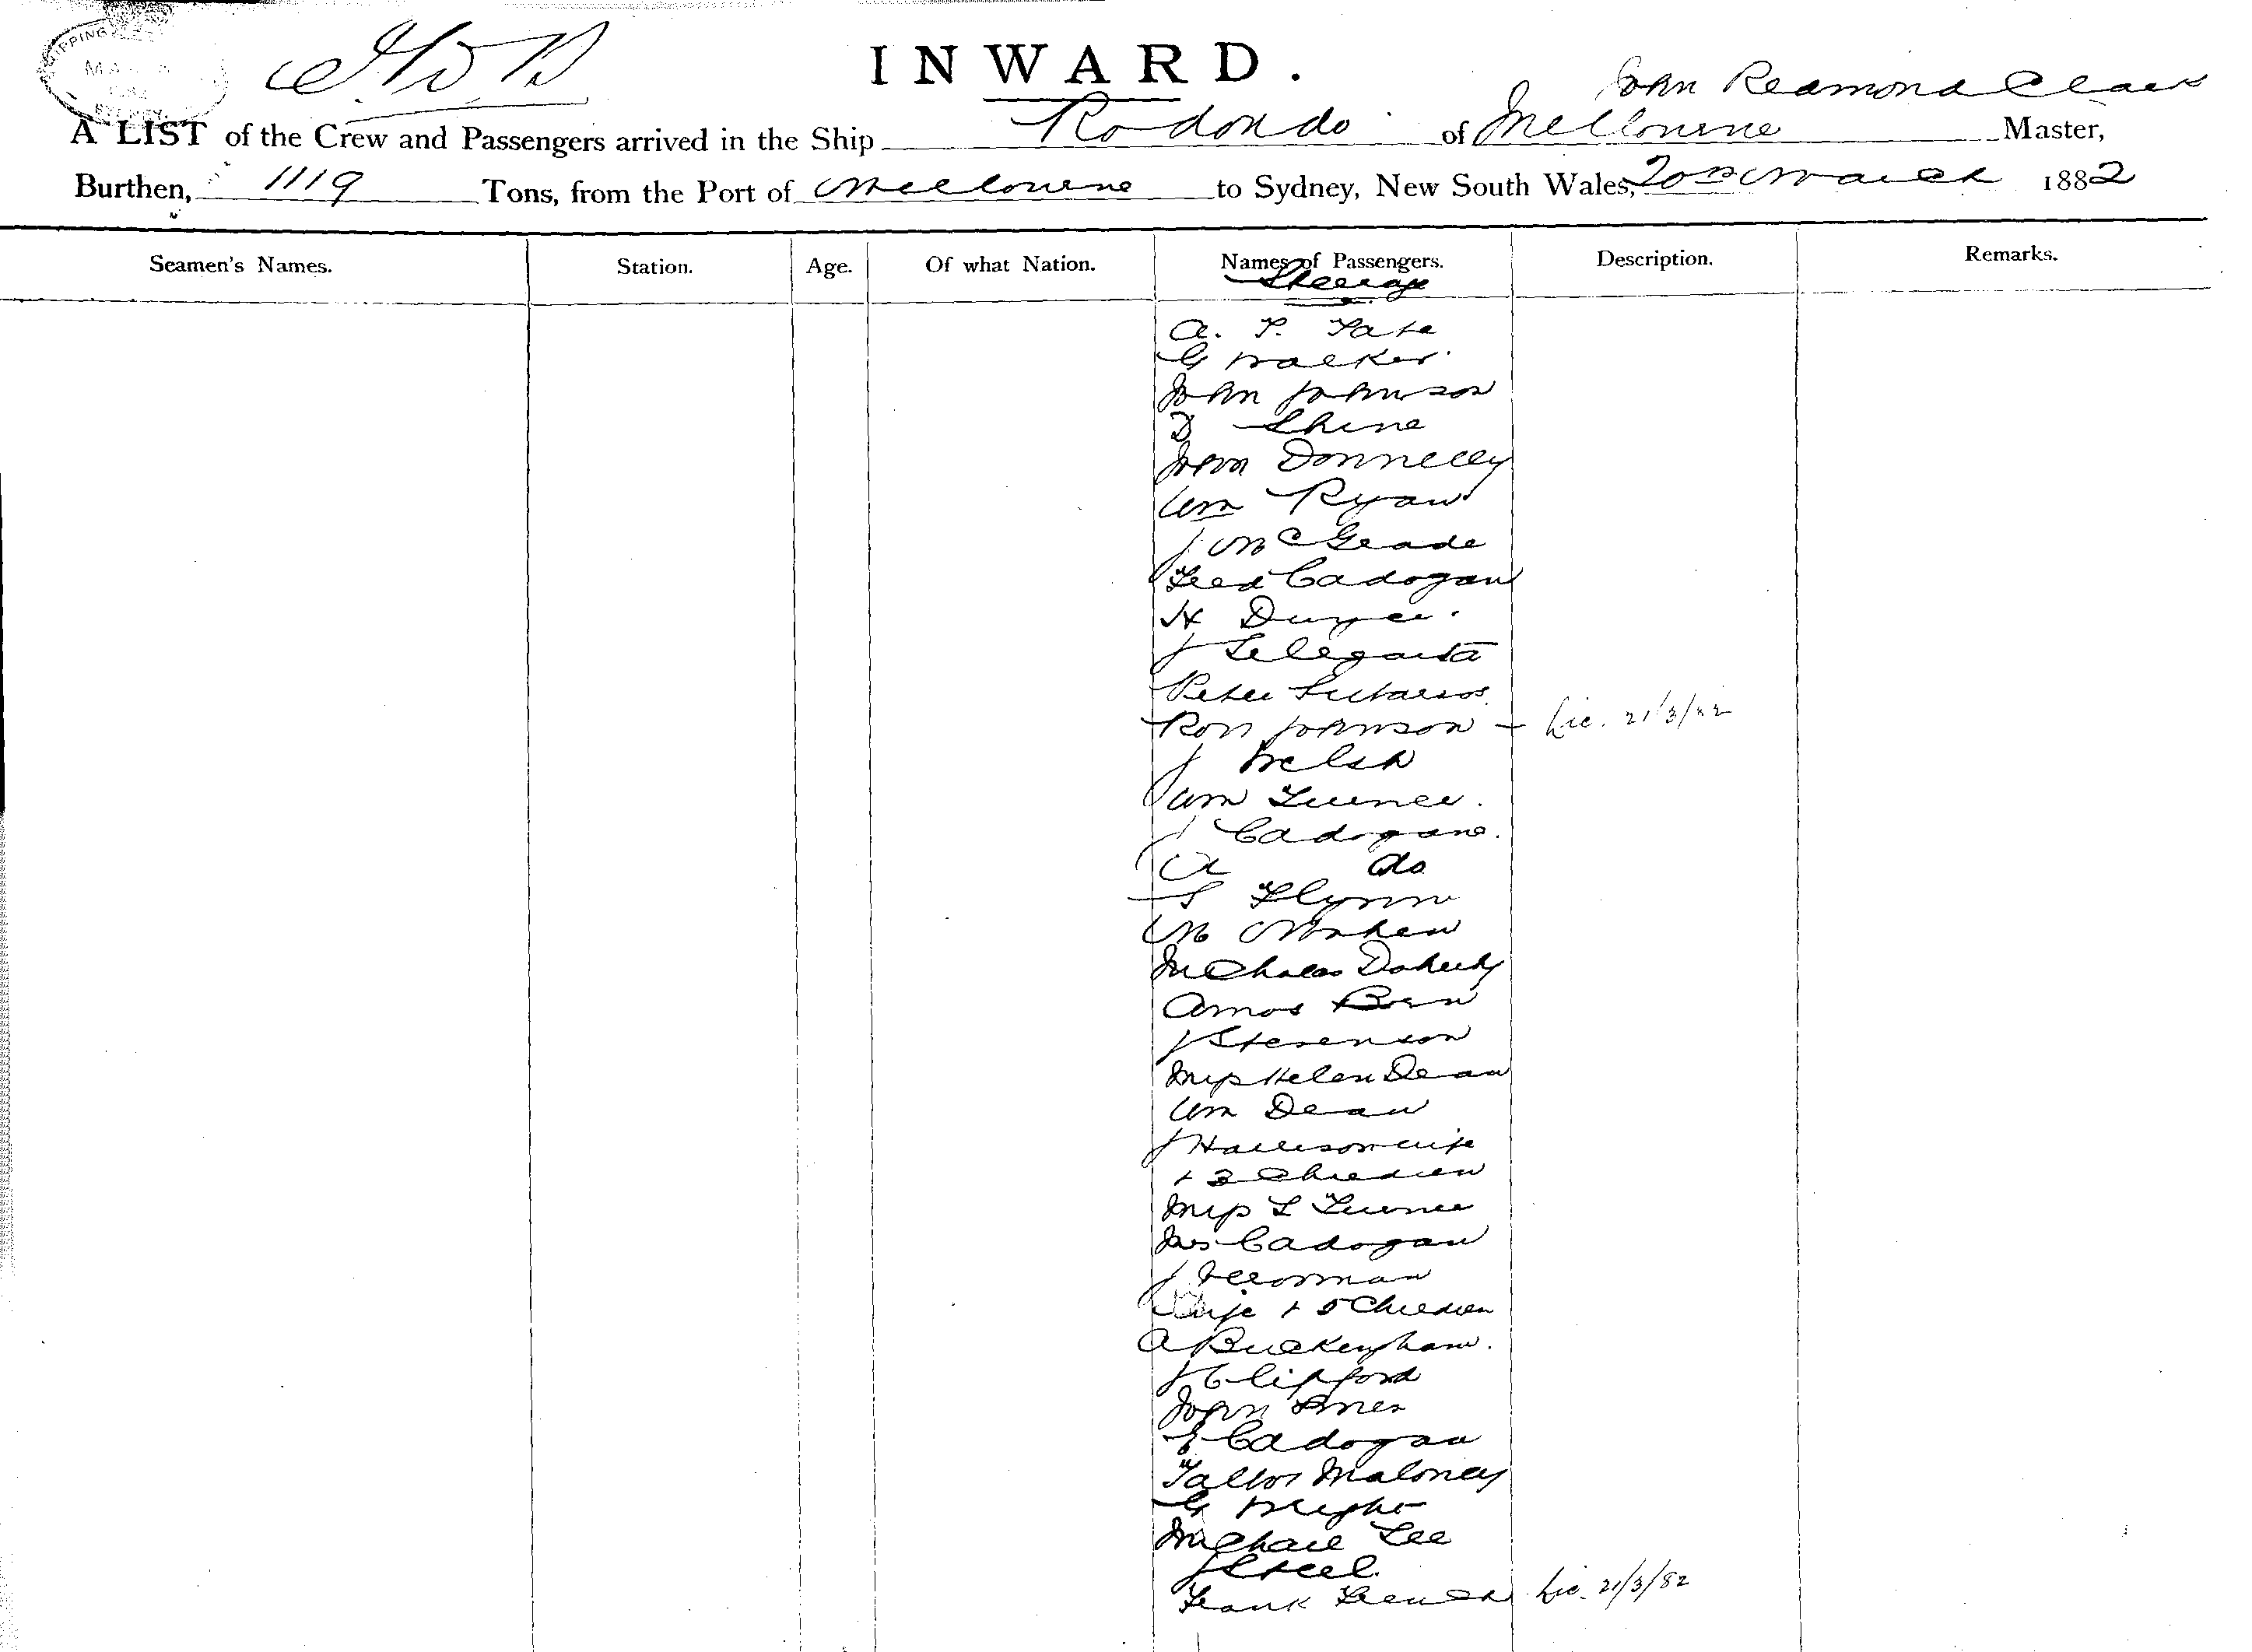 SHIPPING
SYDNEY
INWARD.
John Redmond Clark
A LIST of the Crew and Passengers arrived in the Ship Rodondo of Melbourne Master,
Burthen, 1119 Tons, from the Port of Melbourne to Sydney, New South Wales, 20th March 1882
Seamen's Names. Station. Age. Of what Nation. Names of Passengers. Description. Remarks.
Steerage
A. T. Tate
G Walker
John Johnson
D Shine
John Donnelly
Wm Ryan
J McGrade
Fred Cadogan
H
J
Peter
Ron Johnson - Lic. 21/3/82
J Welsh
Wm Turner.
J Cadogan.
A do
S Flynn
M
Nicholas Doherty
Amos
J Stevenson
Miss Helen Dean
Wm Dean
J Harrison wife
+ 3 Children
Miss L Turner
Mrs Cadogan
J
Wife + 5 Children
A Buckingham.
J Clifford
John
E Cadogan
Maloney
G Wright
Michael Lee
J Steel.
Frank French Lic. 21/3/82